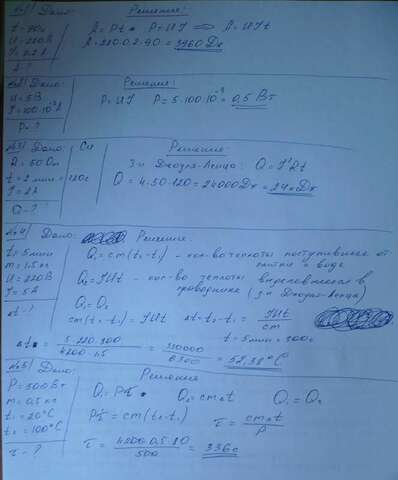 №1 Дано:
t=90с
U=220В
I=0.2А
A-?
Решение:
A=Pt P=UI => A=UIt
A=220·0.2·90=3960Дж
№2 Дано:
U=5В
I=100·10⁻³А
P=?
Решение:
P=UI P=5·100·10⁻³=0,5Вт
№3 Дано: Си
R=50Ом
t=2мин=120с
I=2А
Q-?
Решение:
З-н Джоуля-Ленца: Q=I²Rt
Q=4·50·120=24000Дж=24кДж
№4 Дано:
t=5мин
m=1,5кг
U=220В
I=5А
Δt-?
Решение:
Q₁=cm(t₂-t₁) - кол-во теплоты поступившее от
плитки к воде
Q₂=IUt - кол-во теплоты выделившееся в
проводнике (з-н Джоуля-Ленца)
Q₁=Q₂
cm(t₂-t₁)=IUt Δt=t₂-t₁=IUt/cm
t=5мин=300с
Δt=5·220·300/4200·1.5=330000/6300=52,38°C
№5 Дано:
P=500Вт
m=0,5кг
t₁=20°C
t₂=100°C
τ-?
Решение
Q₁=Pτ Q₂=cmΔt Q₁=Q₂
Pτ=cm(t₂-t₁) τ=cmΔt/P
τ=4200·0,5·80/500=336с